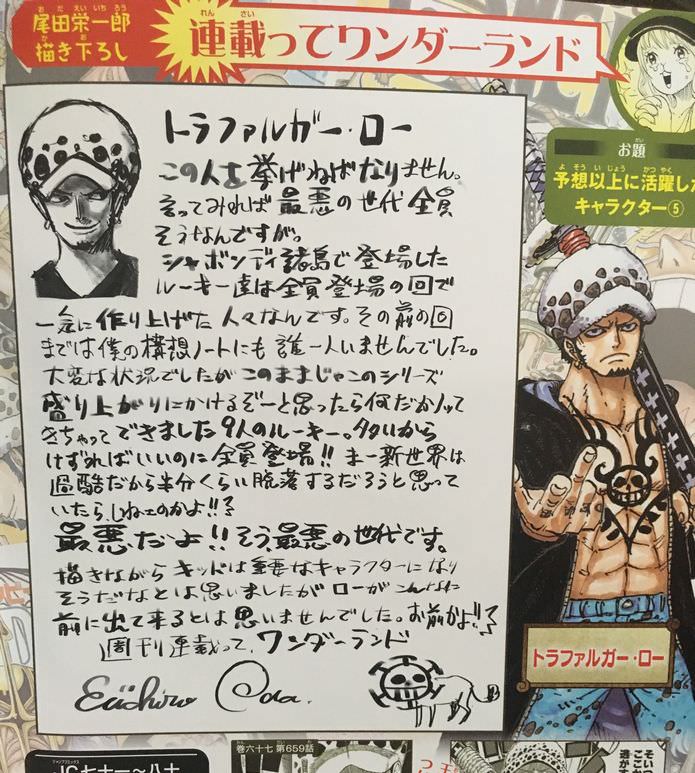 尾田栄一郎
描き下ろし
連載ってワンダーランド
お題
予想以上に活躍した
キャラクター⑤
トラファルガー・ロー
この人を挙げねばなりません。
言ってみれば最悪の世代全員
そうなんですが。
シャボンディ諸島で登場した
ルーキー達は全員登場の回で
一気に作り上げた人々なんです。その前の回
までは僕の構想ノートにも誰一人いませんでした。
大変な状況でしたがこのままじゃこのシリーズ
盛り上がりにかけるぞーと思ったら何だかノッて
きちゃってできました9人のルーキー。多いから
けずればいいのに全員登場!! まー新世界は
過酷だから半分くらい脱落するだろうと思って
いたら、しねェのかよ!!
最悪だよ!! そう、最悪の世代です。
描きながらキッドは重要なキャラクターになり
そうだなとは思いましたがローがこんなに
前に出て来るとは思いませんでした。お前かよ!!
週刊連載って、ワンダーランド
Eiichiro Oda.
トラファルガー・ロー
JC七十一〜八十
巻六十七 第659話